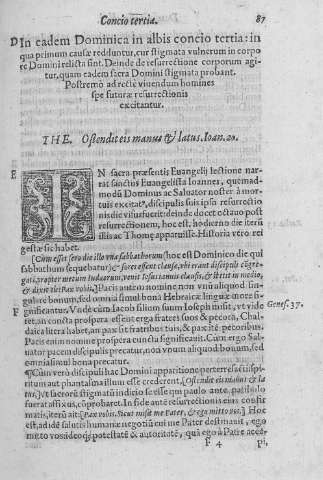 Concio tertia. 87
D In eadem Dominica in albis concio tertia: in
qua primum causæ redduntur, cur stigmata vulnerum in corpo
re Domini relicta sint. Deinde de resurrectione corporum agi-
tur, quam eadem sacra Domini stigmata probant.
Postremò ad rectè viuendum homines
spe futuræ resurrectionis
excitantur.
THE. Ostendit eis manus & latus. Ioan. 20.
E IN sacra præsentis Euangelij lectione nar-
rat sanctus Euangelista Ioannes, quemad-
modũ Dominus ac Saluator noster à mor-
tuis excitatꝰ, discipulis suis ipsa resurrectio
nis die visus fuerit: deinde docet octauo post
resurrectionem, hoc est, hodierno die iterũ
illis ac Thomę apparuisse. Historia vero rei
gestæ sic habet.
(Cum esset sero die illo vna sabbathorum (hoc est Dominico die qui
sabbathum sequebatur) & fores essent clausæ, vbi erant discipuli cõgre-
gati, propter metum Iudæorum, venit Iesus ianuis clausis, & stetit in medio,
& dixit eis: Pax vobis.) Pacis autem nomine non vnũ aliquod sin-
gulare bonum, sed omnia simul bona Hebraica linguæ more si-
F gnificantur. Vnde cum Iacob filium suum Ioseph misit, vt vide
ret, an cuncta prospera essent erga fratres suos & pecora, Chal-
daica litera habet, an pax sit fratribus tuis, & pax ite pecoribus.
Genes. 37.
Pacis enim nomine prospera cuncta significantur. Cum ergo Sal-
uator pacem discipulis precatur, nõ vnum aliquod bonum, sed
omnia simul bona precatur.
Cum verò discipuli hac Domini apparitione perterresacti
ritum aut phantasma illum esse crederent, (Ostendit eis manus & la
tus,) vt sacrorũ stigmatũ indicio se esse qui paulo ante, patibulo
fuerat affixus, cõprobaret. In fide autẽ resurrectionis eius confir
matis, iterũ ait (Pax vobis. Sicut misit me Pater, & ego mitto vos.) Hoc
est, ad idẽ salutis humanæ negotiũ cui me Pater destinauit, ego
mitto vos: ideoq; potestatẽ & autoritatẽ, quã ego à Patre accepi,
F 4